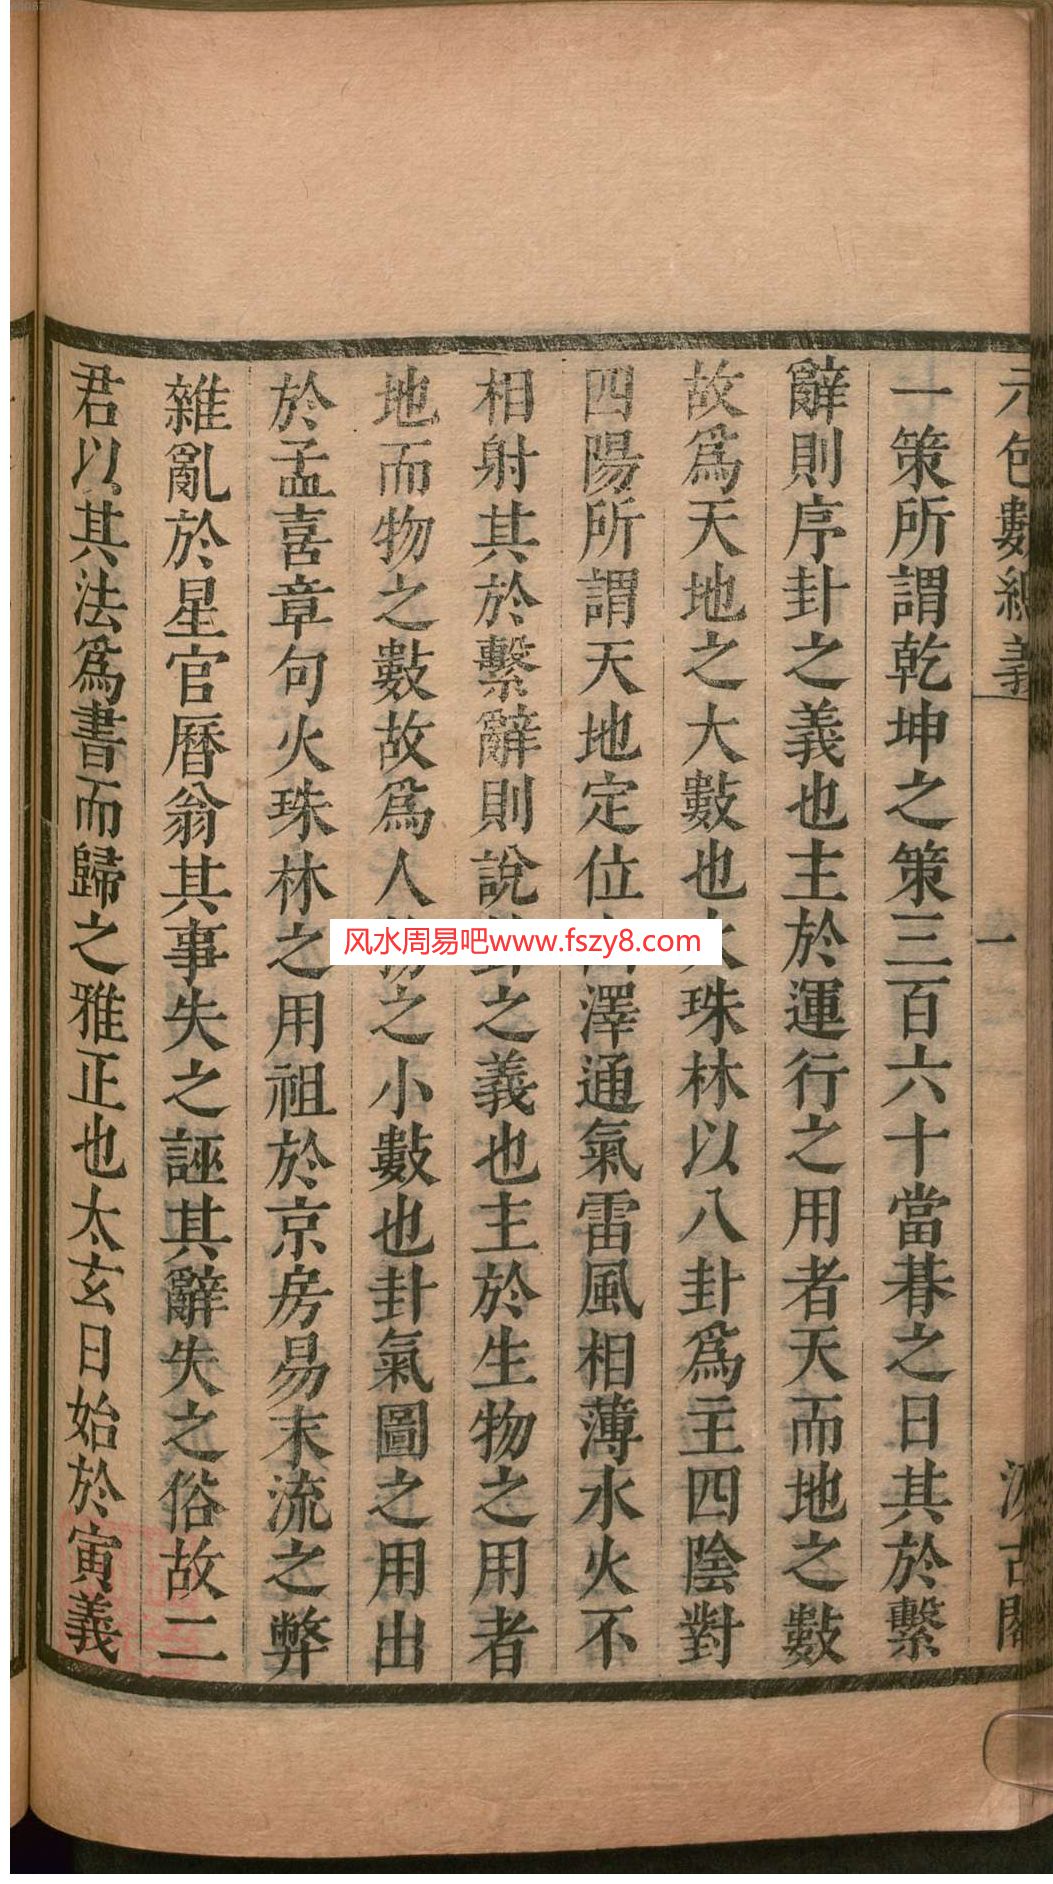 元包數總義
一
汲古閣
一策所謂乾坤之策三百六十當朞之日其於繫
辭則序卦之義也主於運行之用者天而地之數
故爲天地之大數也火珠林以八卦爲主四陰對
四陽所謂天地定位澤通氣雷風相薄水火不
相射其於繫辭則說卦之義也主於生物之用者
地而物之數故爲人物之小數也卦氣圖之用出
於孟喜章句火珠林之用祖於京房易末流之弊
雜亂於星官曆翁其事失之誣其辭失之俗故二
君以其法爲書而歸之雅正也太玄日始於寅義
风水周易吧www.fszy8.com